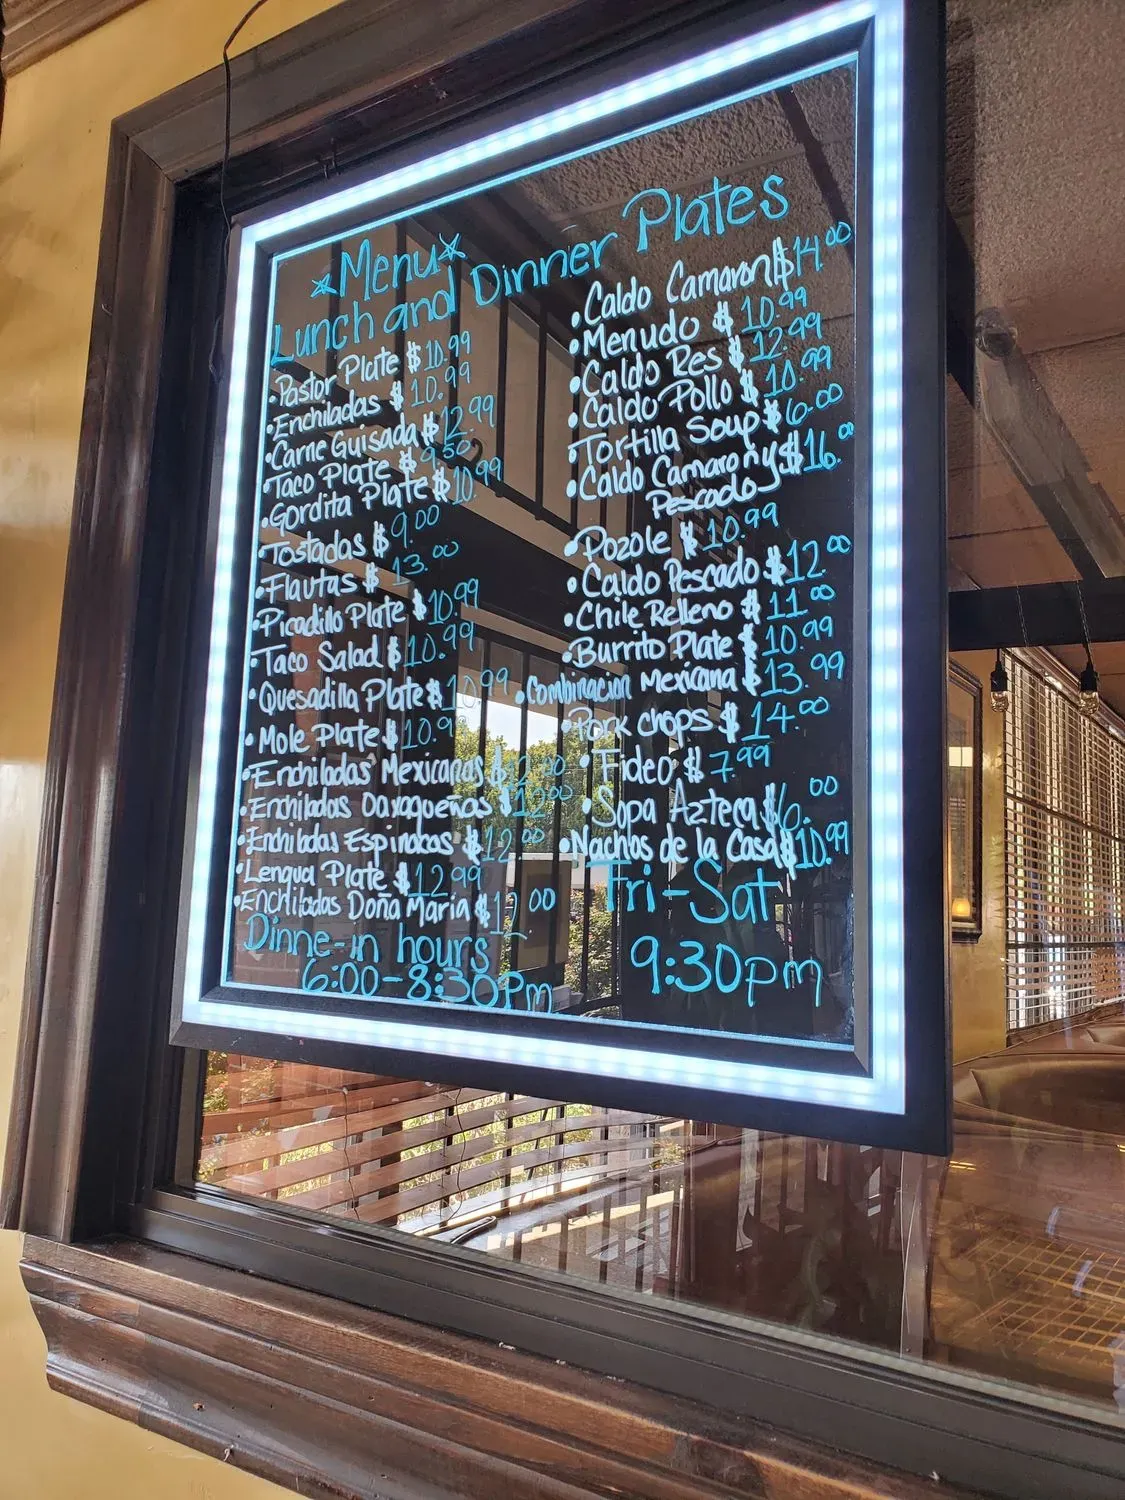 Menu
Lunch and Dinner Plates
• Pastor Plate $10.99
• Enchiladas $10.99
• Carne Guisada $12.99
• Taco Plate $9.50
• Gordita Plate $10.99
• Tostadas $9.00
• Flautas $13.00
• Picadillo Plate $10.99
• Taco Salad $10.99
• Quesadilla Plate $10.99
• Mole Plate $10.9
• Enchiladas Mexicanas $12.00
• Enchiladas Oaxaqueñas $12.00
• Enchiladas Espinacas $12.00
• Lengua Plate $12.99
• Enchiladas Doña Maria $
Dinne-in hours
6:00-8:30pm
• Caldo Camaron $14.00
• Menudo $10.99
• Caldo Res $12.99
• Caldo Pollo $10.99
• Tortilla Soup $6.00
• Caldo Camaron y $16.00
Pescado
• Pozole $10.99
• Caldo Pescado $12.00
• Chile Relleno $11.00
• Burrito Plate $10.99
• Combinacion Mexicana $13.99
• Pork chops $14.00
• Fideo $7.99
• Sopa Azteca $6.00
• Nachos de la Casa $10.99
Fri-Sat
9:30pm